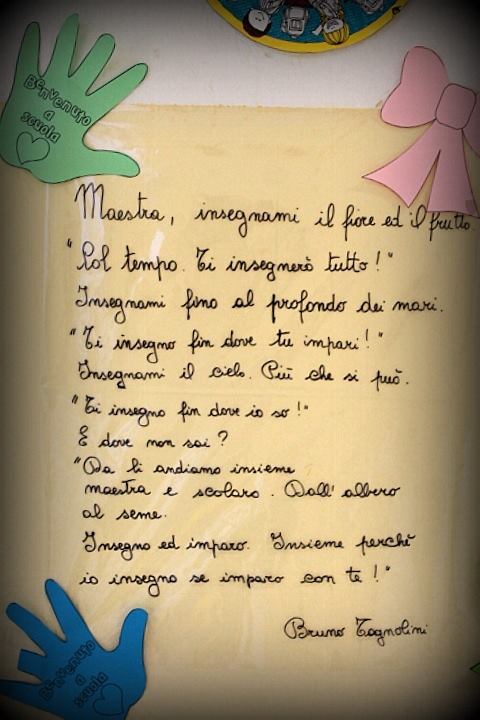 Benvenuto
a
scuola
Maestra, insegnami il fiore ed il frutto.
"Col tempo. Ti insegnerò tutto!"
Insegnami fino al profondo dei mari.
"Ti insegno fin dove tu impari!"
Insegnami il cielo. Più che si può.
"Ti insegno fin dove io so!"
E dove non sai?
"Da lì andiamo insieme
maestra e scolaro. Dall' albero
al seme.
Insegno ed imparo. Insieme perchè
io insegno se imparo con te!"
Bruno Tognolini
Benvenuto
a
scuola